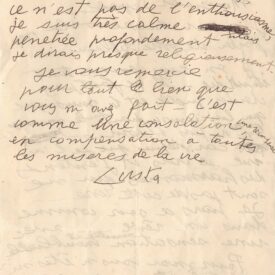 ce n'est pas de l'enthousiasme
je suis très calme mais
penetrée profondement
je dirais presque religieusement
Je vous remercie
pour tout le bien que
vous m'avez fait - c'est
comme une consolation
en compensation a toutes
les miseres de la vie